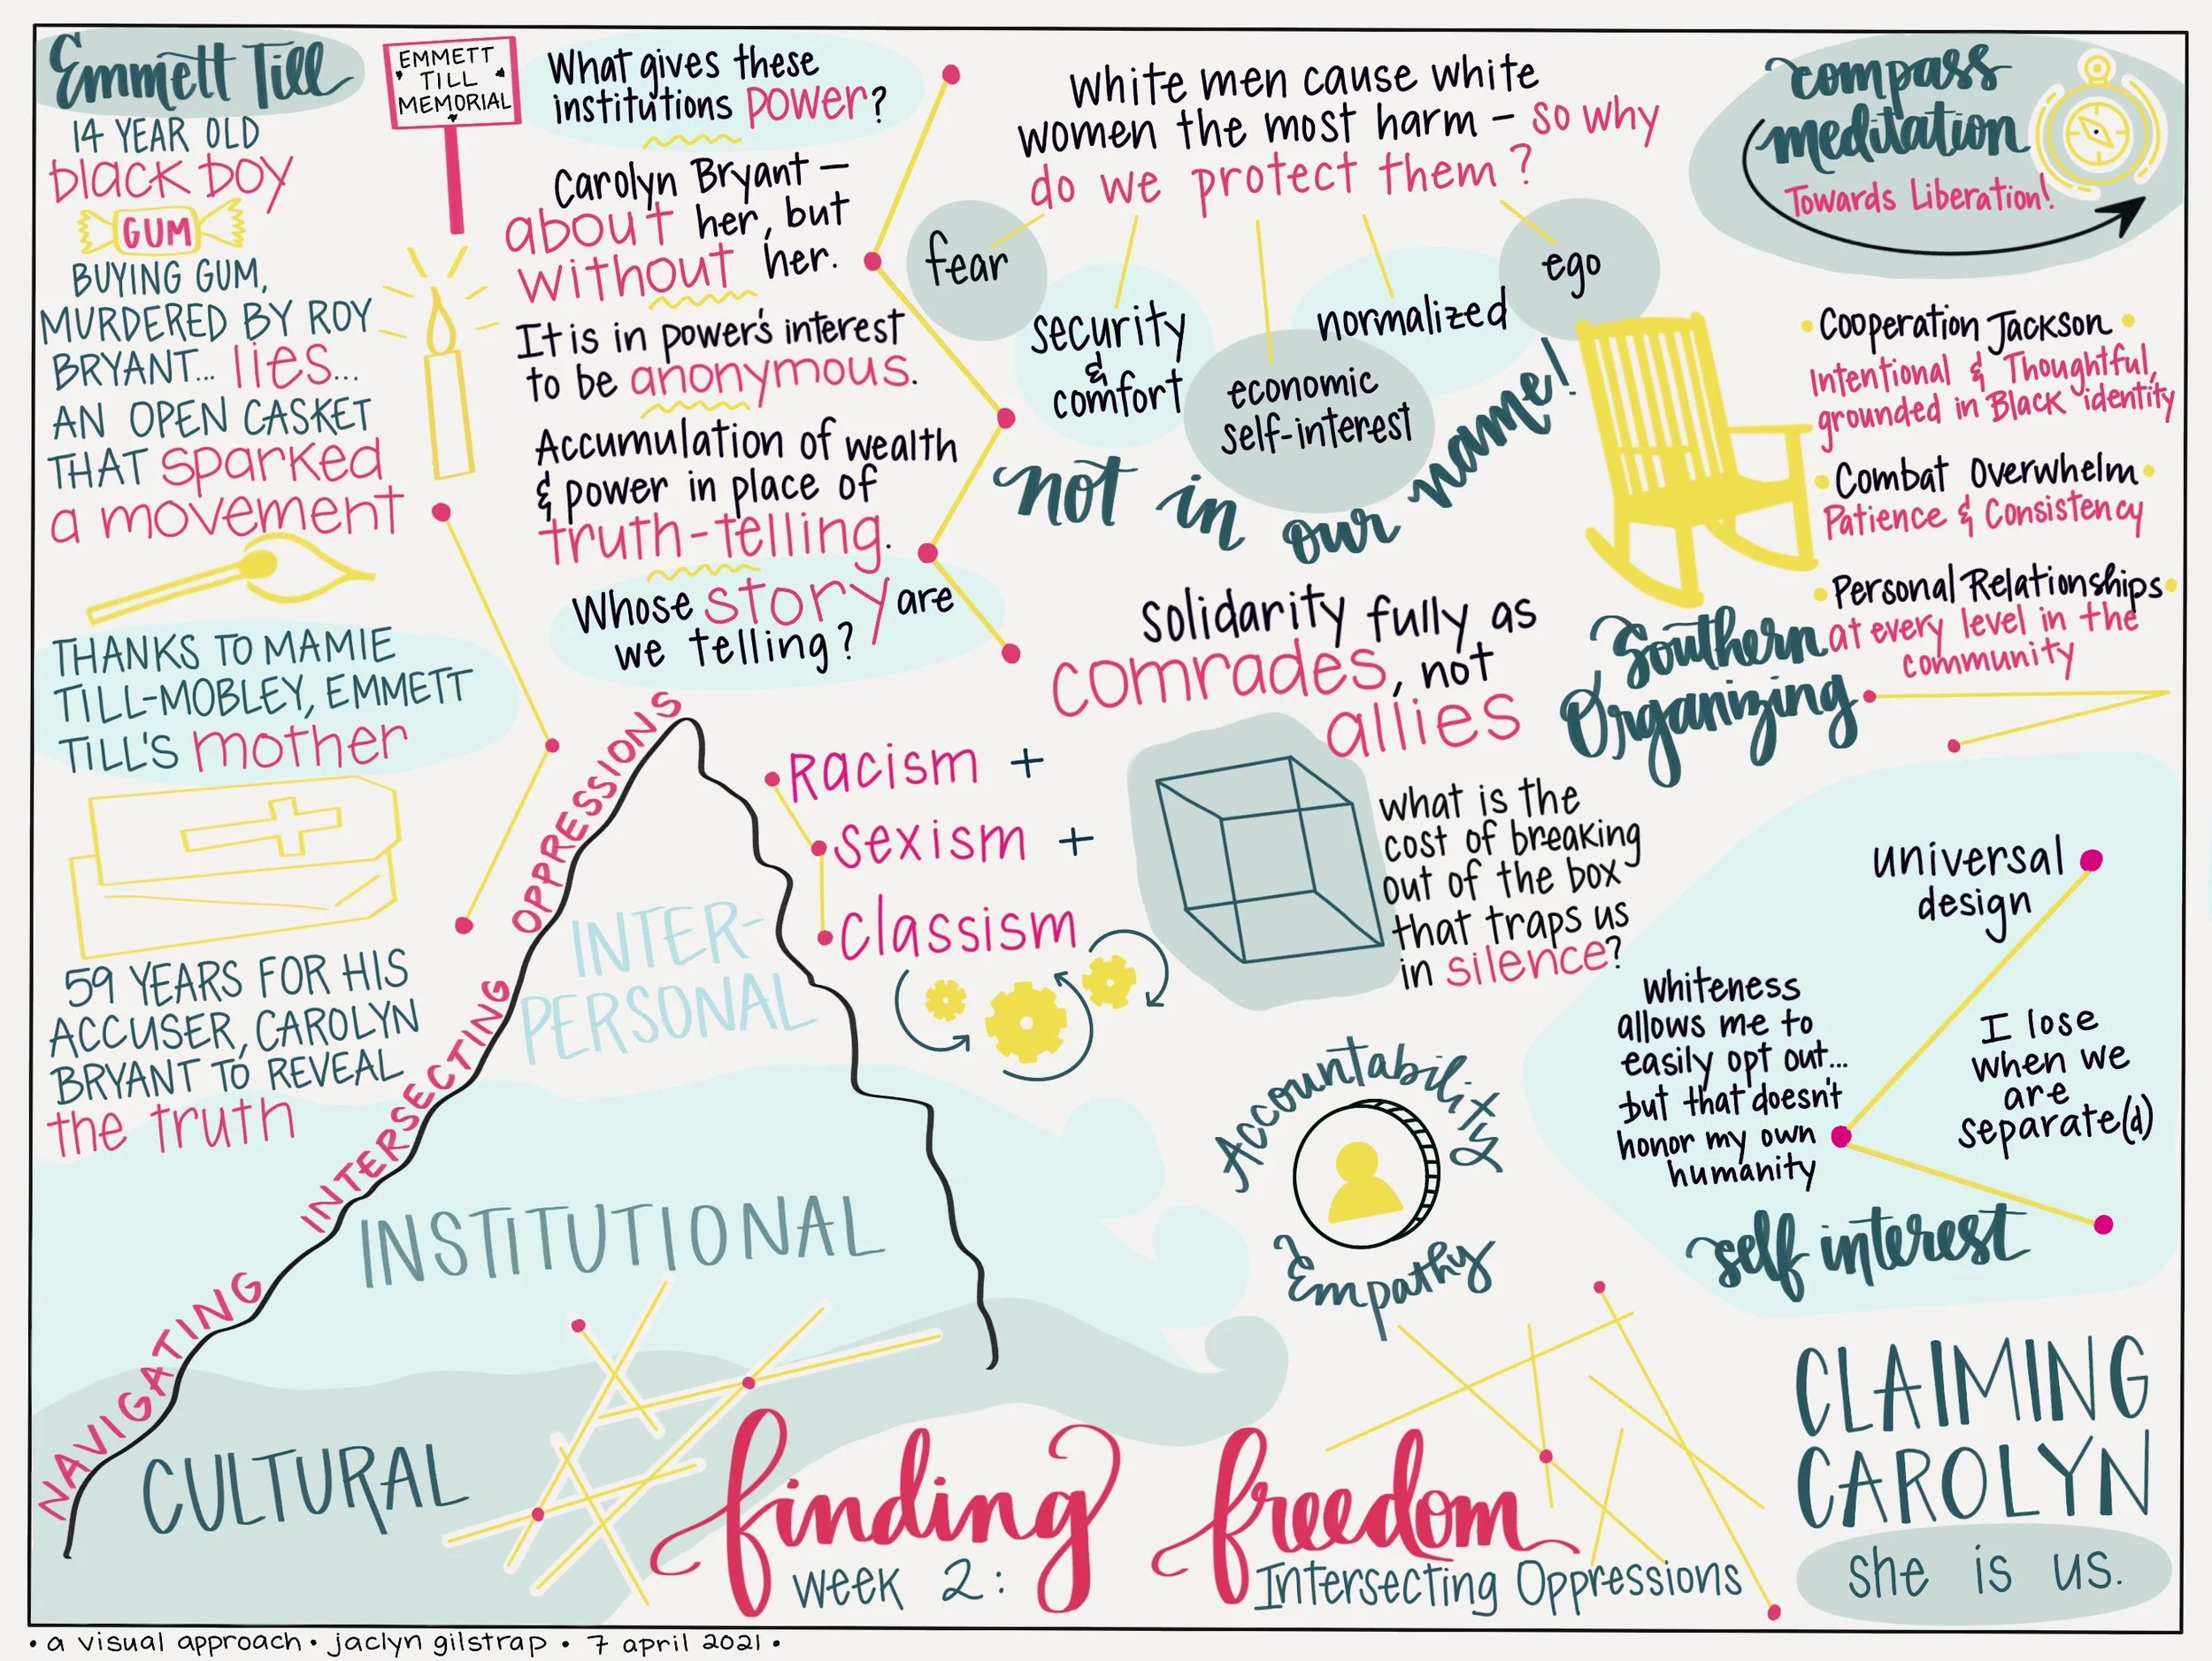 Emmett Till
14 YEAR OLD
black boy
GUM
BUYING GUM,
MURDERED BY ROY
BRYANT... lies...
AN OPEN CASKET
THAT sparked
a movement
THANKS TO MAMIE
TILL-MOBLEY, EMMETT
TILL'S mother
59 YEARS FOR HIS
ACCUSER, CAROLYN
BRYANT TO REVEAL
the truth
EMMETT
TILL
MEMORIAL
What gives these
institutions power?
Carolyn Bryant —
about her, but
without her.
It is in power's interest
to be anonymous.
Accumulation of wealth
& power in place of
truth-telling.
Whose story are
we telling?
white men cause white
women the most harm - so why
do we protect them?
fear
security
&
comfort
economic
self-interest
normalized
ego
not in our name!
compass
meditation
Towards Liberation!
• Cooperation Jackson •
Intentional & Thoughtful,
grounded in Black identity
• Combat Overwhelm •
Patience & Consistency
• Personal Relationships •
at every level in the
community
Southern
Organizing
solidarity fully as
comrades, not
allies
what is the
cost of breaking
out of the box
that traps us
in silence?
NAVIGATING INTERSECTING OPPRESSIONS
INTER-
PERSONAL
INSTITUTIONAL
CULTURAL
Racism +
sexism +
classism
Accountability &
Empathy
universal
design
whiteness
allows me to
easily opt out...
but that doesn't
honor my own
humanity
I lose
when we
are
separate(d)
self interest
CLAIMING
CAROLYN
she is us.
finding freedom
week 2: Intersecting Oppressions
• a visual approach • jaclyn gilstrap • 7 april 2021 •